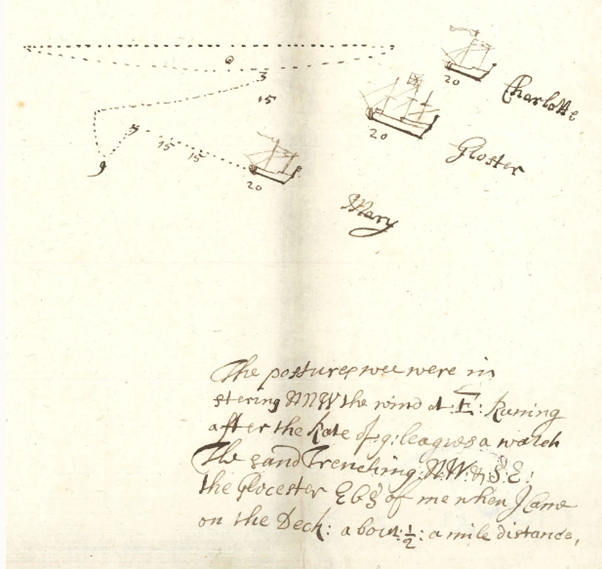 3
15
20
Charlotte
20
Gloster
3
15 15
9
20
Mary
The postures wee were in
stering NNW the wind at: E: Runing
after the Rate of 9: leagues a watch
The sand Trenching: N.W: & S:E:
the Glocester EbS of me when J Came
on the Deck: about: ½: a mile distance,